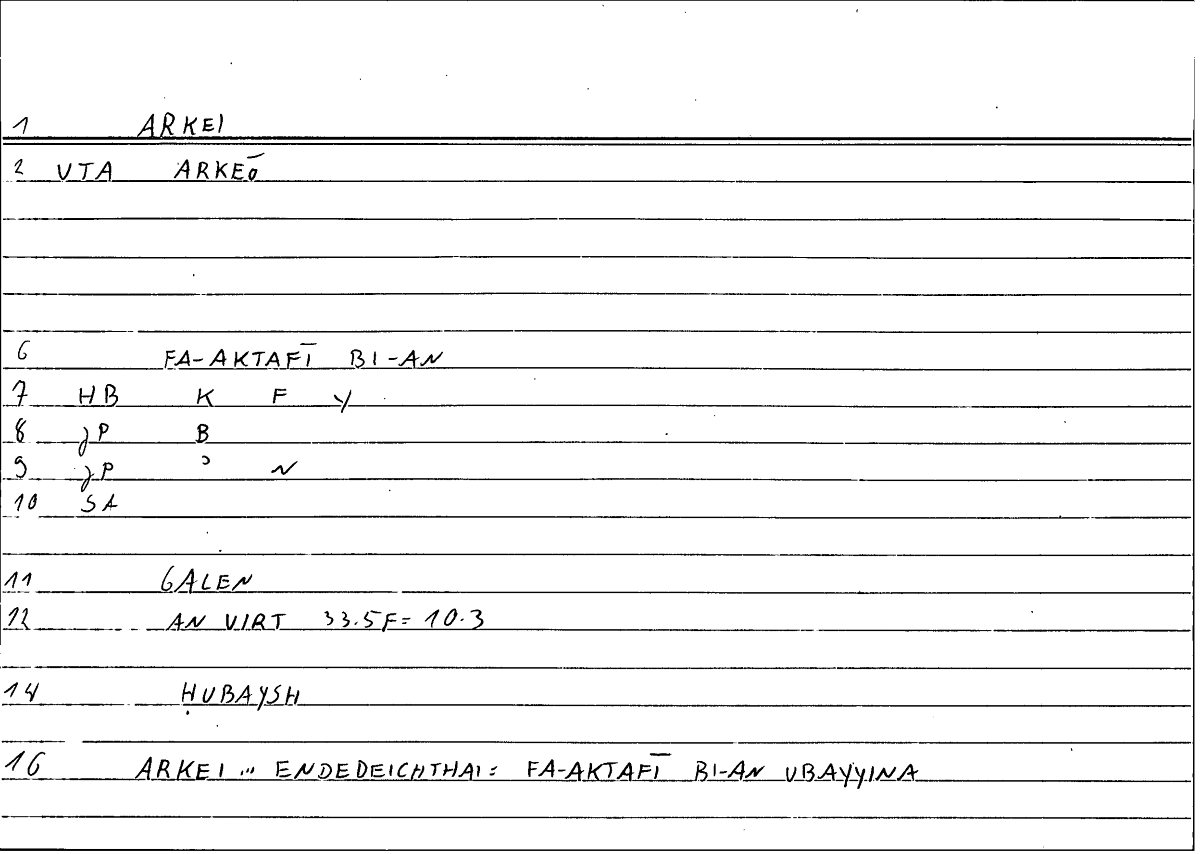 1 ARKEI
2 VTA ARKEŌ
6 FA-AKTAFĪ BI-AN
7 HB K F Y
8 JP B
9 JP ᵓ N
10 SA
11 GALEN
12 AN VIRT 33.5F= 10.3
14 ḤUBAYSH
16 ARKEI ... ENDEDEICHTHAI: FA-AKTAFĪ BI-AN UBAYYINA